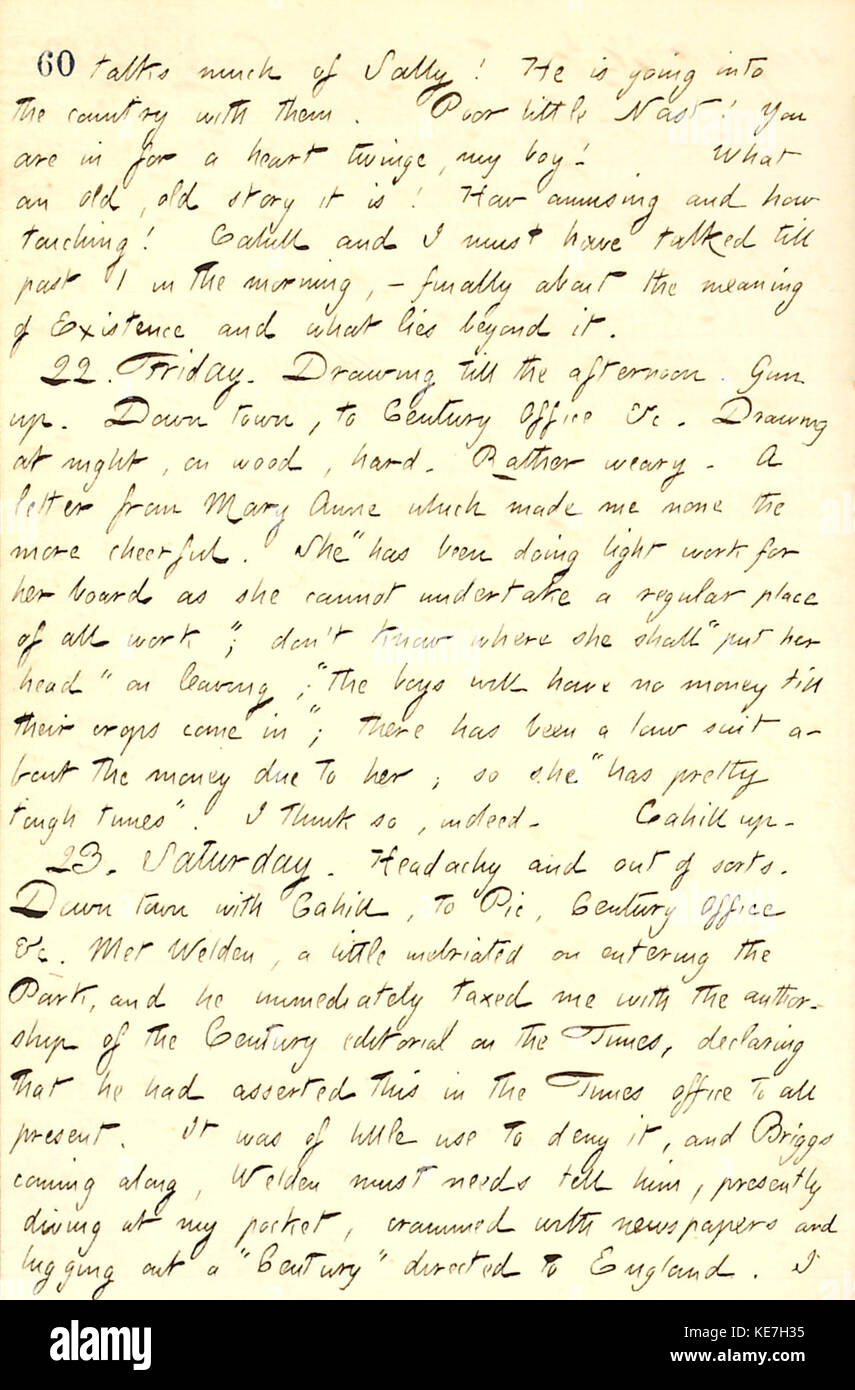 60 talks much of Sally! He is going into
the country with them. Poor little Nast! You
are in for a heart twinge, my boy! What
an old, old story it is! How amusing and how
touching! Cahill and I must have talked till
past 1 in the morning, — finally about the meaning
of Existence and what lies beyond it.
22. Friday. Drawing till the afternoon. Gun
up. Down town, to Century Office &c. Drawing
at night, on wood, hard. Rather weary. A
letter from Mary Anne which made me none the
more cheerful. She "has been doing light work for
her board as she cannot undertake a regular place
of all work"; don't know where she shall "put her
head" on leaving; "the boys will have no money till
their crops come in"; there has been a law suit a-
bout the money due to her; so she "has pretty
tough times". I think so, indeed. Cahill up.
23. Saturday. Headachy and out of sorts.
Down town with Cahill, to Pic, Century Office
&c. Met Welden, a little inebriated on entering the
Park, and he immediately taxed me with the author-
ship of the Century editorial on the Times, declaring
that he had asserted this in the Times office to all
present. It was of little use to deny it, and Briggs
coming along, Welden must needs tell him, presently
diving at my pocket, crammed with newspapers and
lugging out a "Century" directed to England. I
alamy
Image ID: KE7H35
www.alamy.com